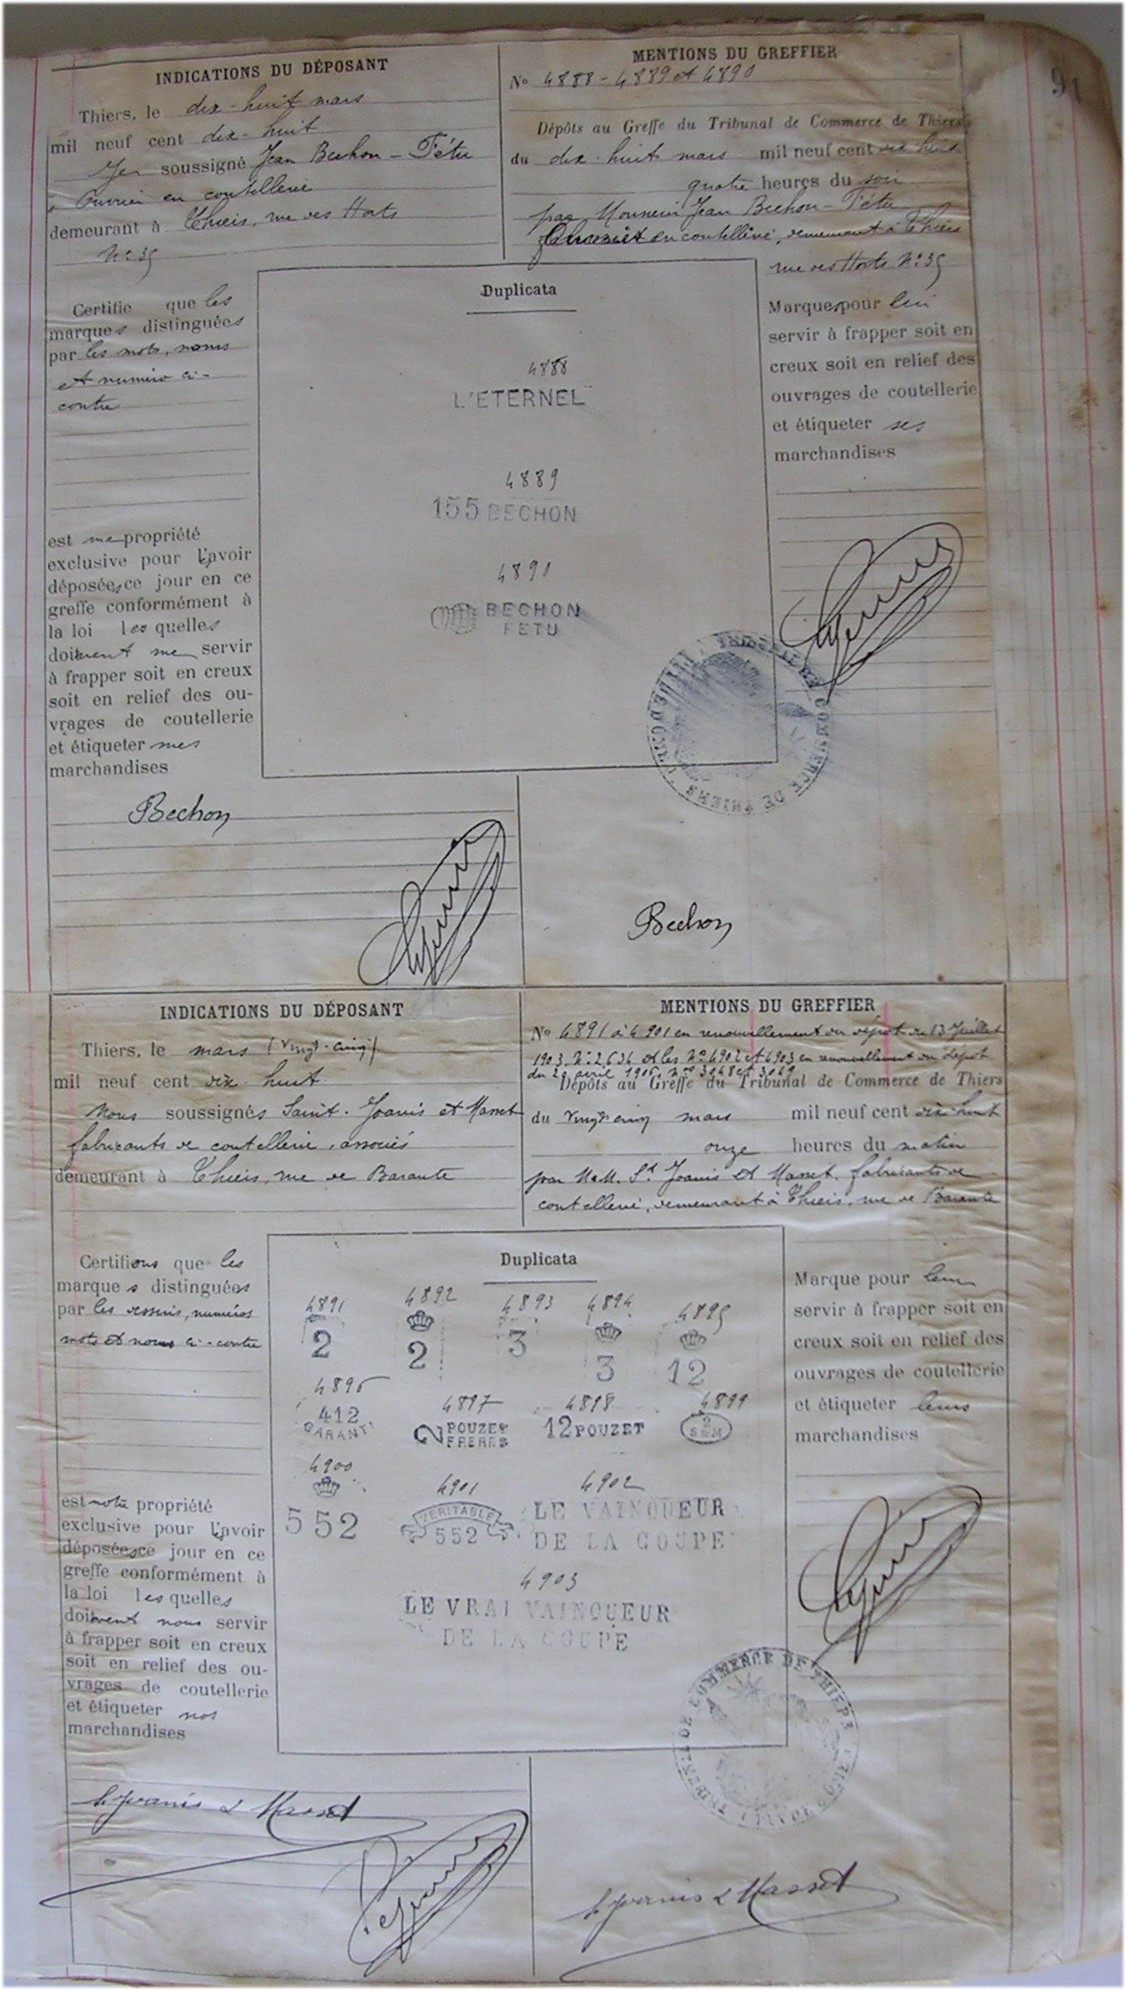 91
INDICATIONS DU DÉPOSANT
Thiers, le dix-huit mars
mil neuf cent dix-huit
Je soussigné Jean Bechon-Fétu
Ouvrier en coutellerie
demeurant à Thiers, rue des Horts
No 35
MENTIONS DU GREFFIER
No 4888-4889 et 4890
Dépôts au Greffe du Tribunal de Commerce de Thiers
du dix-huit mars mil neuf cent dix huit
quatre heures du soir
par Monsieur Jean Bechon-Fétu
Ouvrier en coutellerie, demeurant à Thiers
rue des Horts No 35
Certifie que les
marques distinguées
par les mots, noms
et numéro ci-
contre
est ma propriété
exclusive pour l'avoir
déposées ce jour en ce
greffe conformément à
la loi les quelles
doivent me servir
à frapper soit en creux
soit en relief des ou-
vrages de coutellerie
et étiqueter mes
marchandises
Duplicata
4888
L'ETERNEL
4889
155 BECHON
4890
BECHON
FETU
Marques pour lui
servir à frapper soit en
creux soit en relief des
ouvrages de coutellerie
et étiqueter ses
marchandises
TRIBUNAL DE COMMERCE DE THIERS
Bechon
Bechon
INDICATIONS DU DÉPOSANT
Thiers, le mars (vingt-cinq)
mil neuf cent dix-huit
Nous soussignés Saint-Joanis et Masset
fabricants de coutellerie, associés
demeurant à Thiers, rue de Barante
MENTIONS DU GREFFIER
No 4891 à 4901 en renouvellement du dépôt du 13 Juillet
1903, No 2634 et les No 4902 et 4903 en renouvellement du dépôt
du avril 1906, Nos 3048 et 3049
Dépôts au Greffe du Tribunal de Commerce de Thiers
du vingt cinq mars mil neuf cent dix huit
onze heures du matin
par M.M. St Joanis et Masset, fabricants de
coutellerie, demeurant à Thiers, rue de Barante
Certifions que les
marques distinguées
par les dessins, numéros
mots et noms ci-contre
est notre propriété
exclusive pour l'avoir
déposées ce jour en ce
greffe conformément à
la loi les quelles
doivent nous servir
à frapper soit en creux
soit en relief des ou-
vrages de coutellerie
et étiqueter nos
marchandises
Duplicata
4891 4892 4893 4894 4895
2 2 3 3 12
4896 4897 4898 4899
412 GARANTI
2 POUZET FRERES
12 POUZET
2 S&M
4900 4901 4902
552
VERITABLE 552
LE VAINQUEUR
DE LA COUPE
4903
LE VRAI VAINQUEUR
DE LA COUPE
Marque pour leur
servir à frapper soit en
creux soit en relief des
ouvrages de coutellerie
et étiqueter leurs
marchandises
TRIBUNAL DE COMMERCE DE THIERS
St Joanis & Masset
St Joanis & Masset